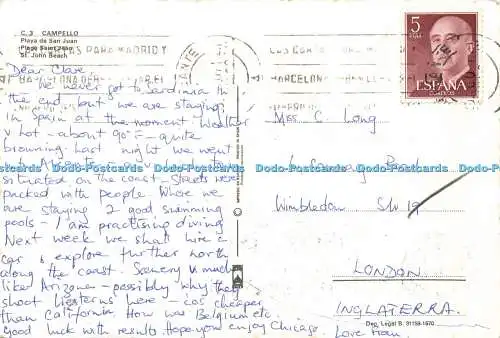 C. 3 CAMPELLO
Playa de San Juan
Plage Saint Jean
St. John Beach
PARA MADRID Y
ALICANTE
BARCELONA
5
PTAS
ESPAÑA
CORREOS
Dear Clare,
We never got to Sardinia in
the end, but we are staying
in Spain at the moment. Weather
v hot - about 90°F - quite
browning. Last night we went
into Alicante
situated on the coast - Streets were
packed with people. Where we
are staying 2 good swimming
pools - I am practising diving
Next week we shall hire a
car & explore further north
along the coast. Scenery v much
like Arizona - possibly why they
shoot Westerns here - cos cheaper
than California. How was Belgium etc.
Good luck with results. Hope you enjoy Chicago.
Love Fran.
Miss C. Long
Road
Wimbledon SW19
LONDON
INGLATERRA.
Dep. Legal B. 31159-1970
Dodo-Postcards